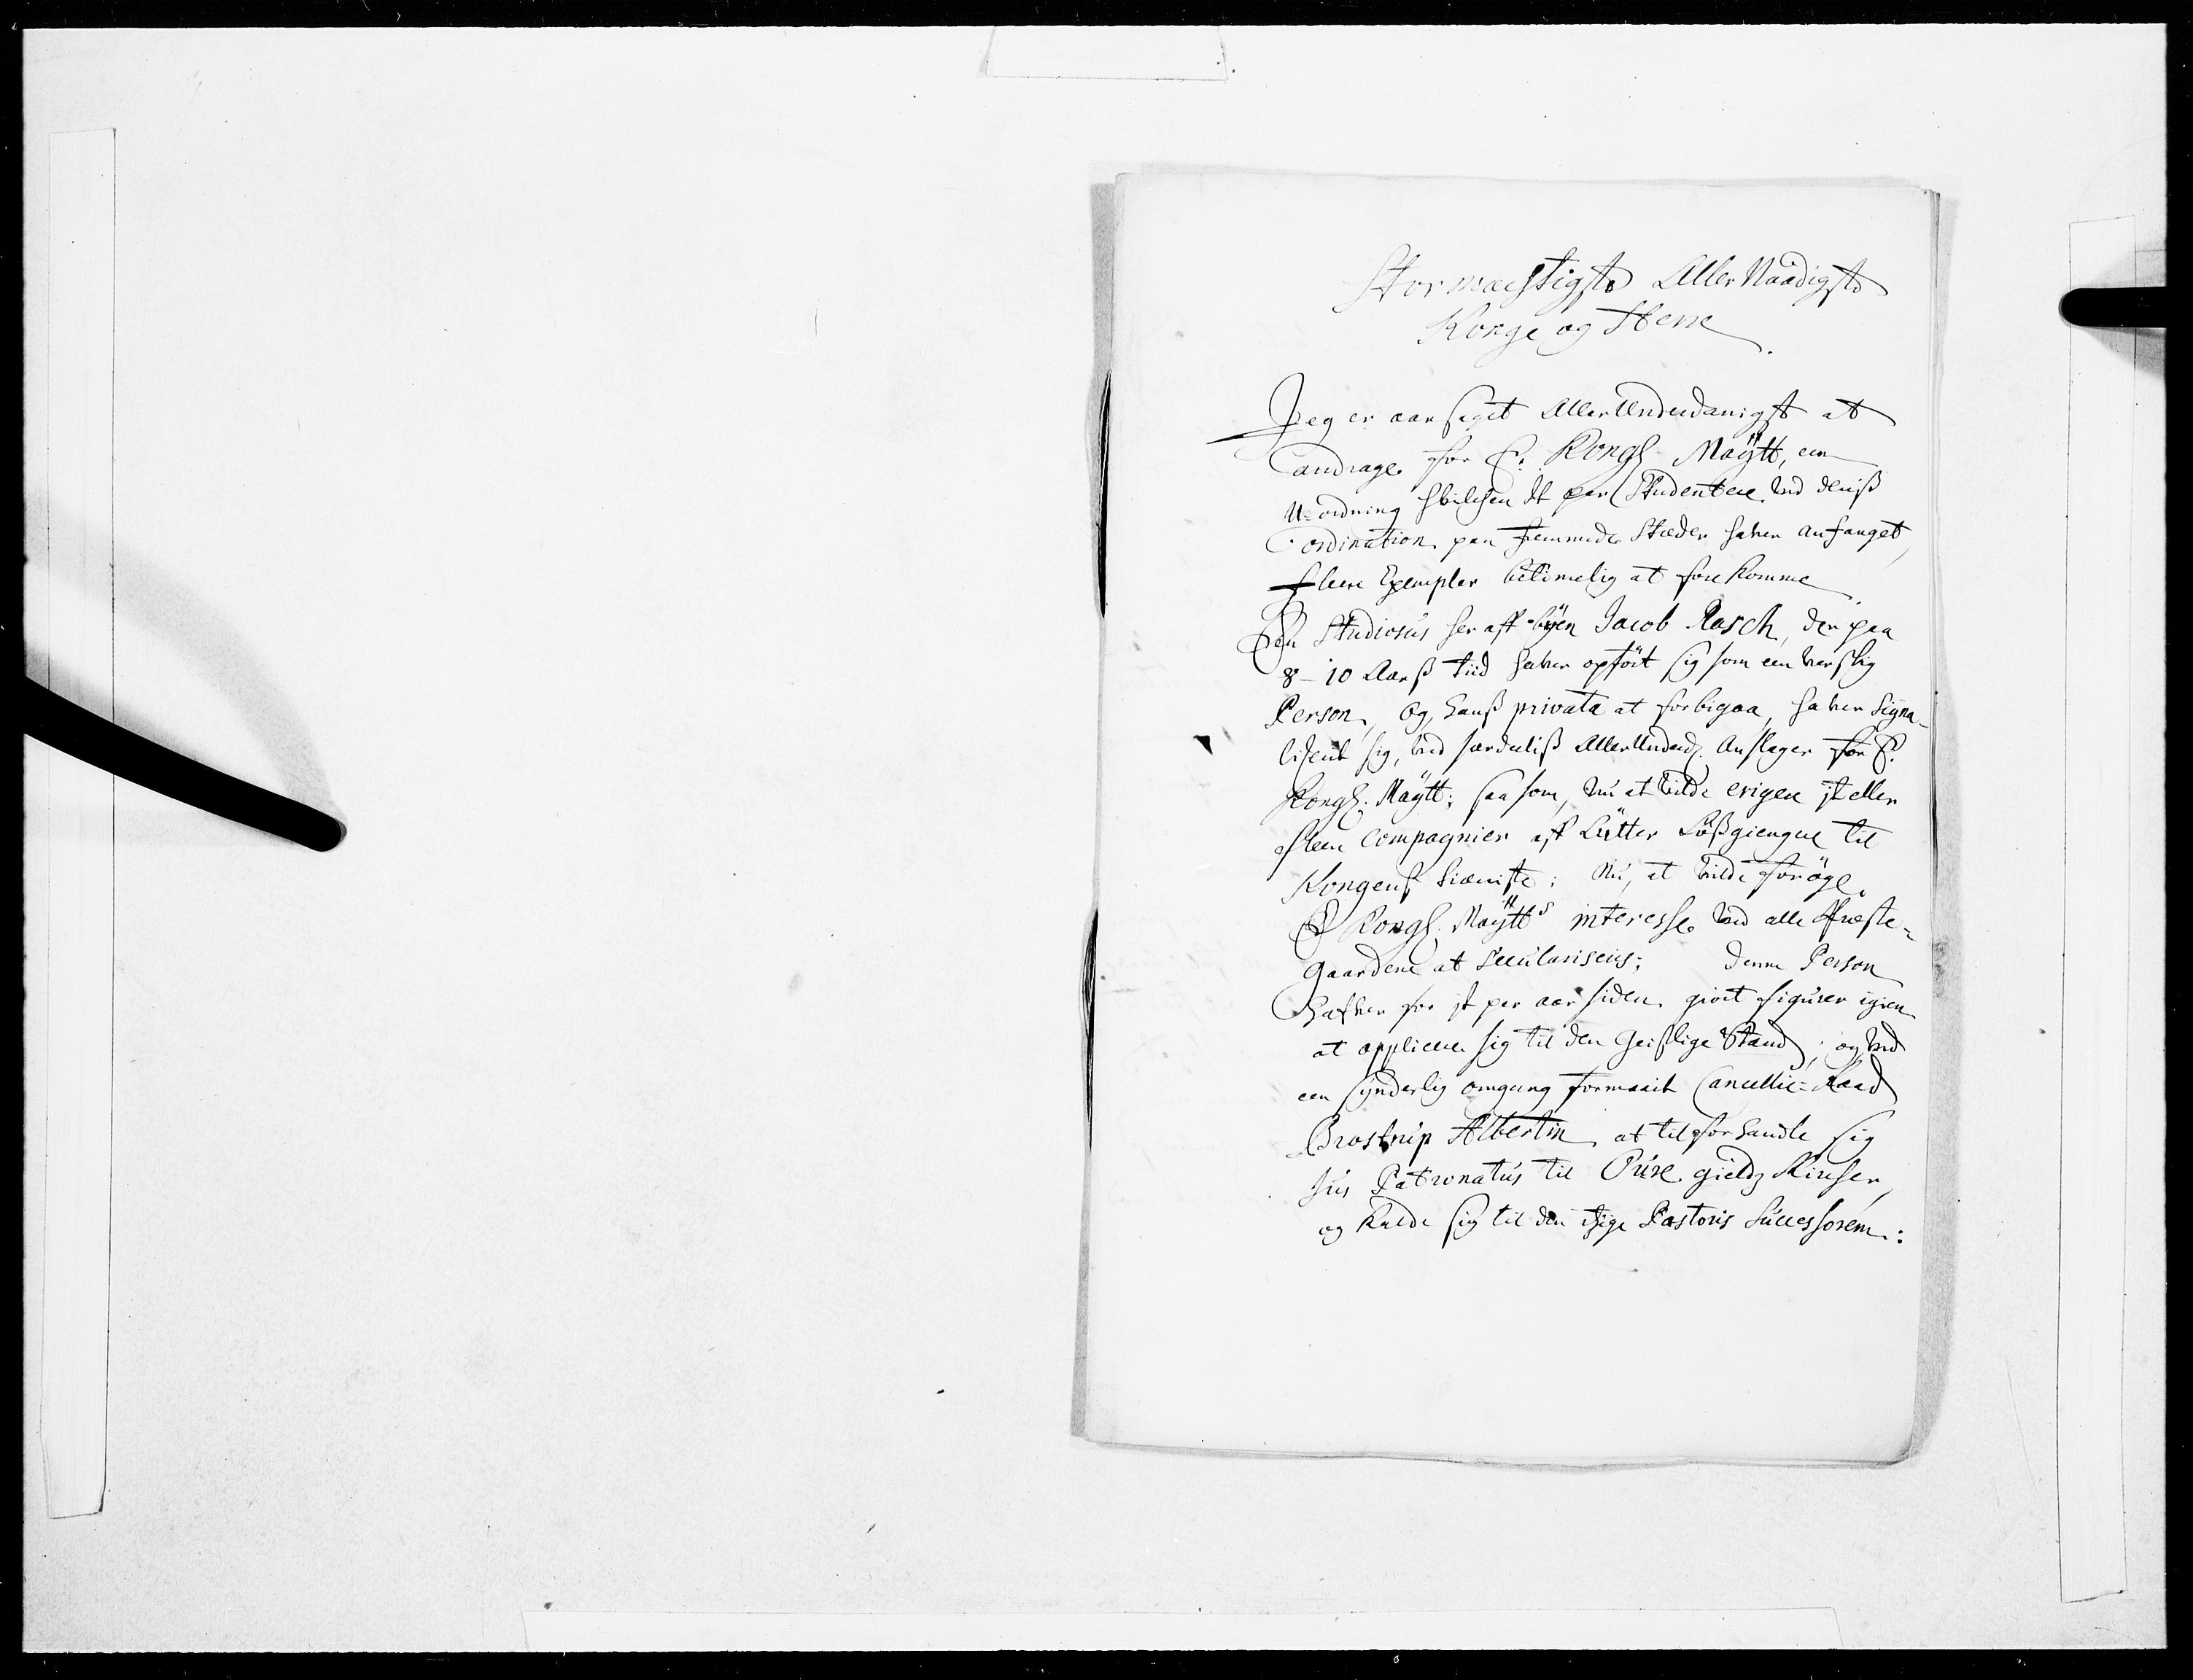 Stormægtigste Aller Naadigste
Konge og Herre
Jeg er aarsaget Allerunderdanigst at
andrage for E. Kongl. Maÿtt, een
U-ordning hvilchen It par Studentere ved deriß
ordination paa fremmede Stæder haver anfanget,
fleere Exempler betimelig at forekomme
En Studiosus her aff Byen Jacob Rasch, der paa
8-10 Aarß tiid haver opført sig som een verslig
Person, og, hanß privata at forbigaa, haver Signa-
liserit sig, ved særdeliß Allerunderd. Anslager for E.
Kongl. Maÿtt; saasom, nu at vilde erigere it eller
fleere Compagnier aff Lutter Løßgiengere til
Kongens tieniste; Nu, at vilde forøge
E Kongl. Maÿtts interesse ved alle Præste-
gaardene at Seculariseris; Denne Person
Hafver for it par aar siden giort figurer igien
at applicere sig til den Geistlige Stand; og ved
een synderlig omgang formaait Cancellie-Raad
Brostrup Albertin at tilforhandle sig
Jus Patronatus til Ouse gields Kircher,
og kalde sig til den itzige Pastoris Successorem: